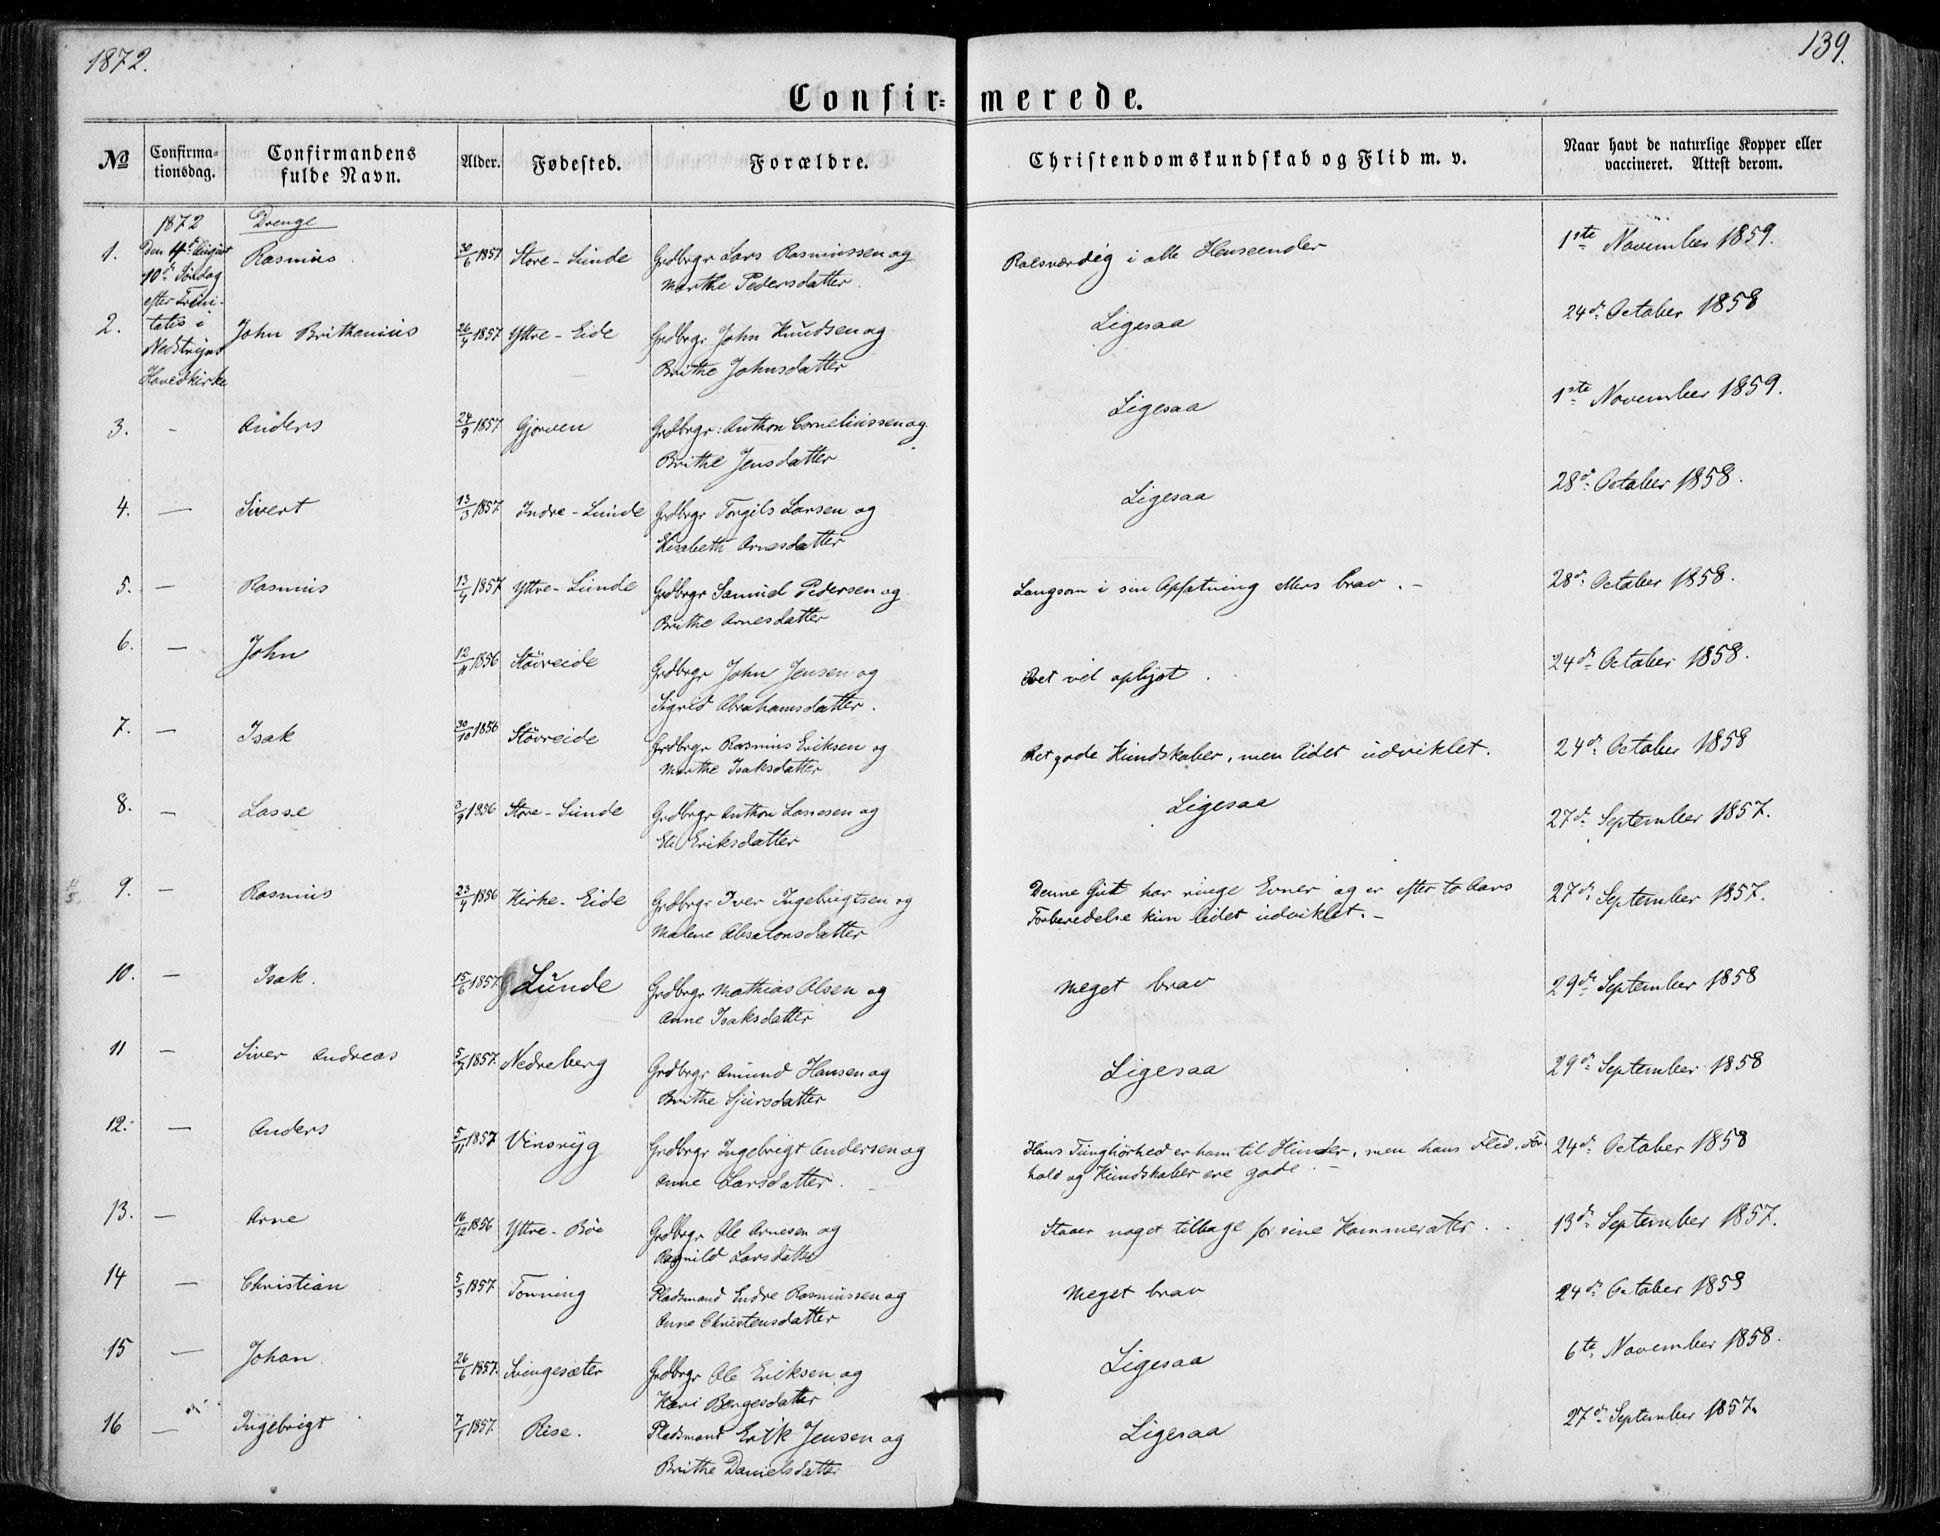 1872.
139.
Confir= merede.
№ Confirma-tionsdag. Confirmandens fulde Navn. Alder. Fødested. Forældre. Christendomskundskab og Flid m. v. Naar havt de naturlige Kopper eller vaccineret. Attest derom.
1872 Drenge
1. Den 4de August Rasmus 30/6 1857 Store-Sunde Grdbrgr Lars Rasmussen og Rosværdig i alle Henseender 1ste November 1859.
10de Søndag Marthe Pedersdatter.
efter Trini-
2. tatis i John Brithanius 26/4 1857 Yttre-Eide Grdbrgr John Knudsen og Ligesaa 24de October 1858
Nedstryns Brithe Johnsdatter
Hovedkirke
3. - Anders 24/9 1857 Gjørven Grdbrgr: Anthon Corneliussen og Ligesaa 1ste November 1859.
Brithe Jensdatter
4. — Sivert 13/3 1857 Indre-Sunde Grdbrgr Torgils Larsen og Ligesaa 28de October 1858.
Elisabeth Arnesdatter
5. — Rasmus 13/4 1857 Yttre-Sunde Grdbrgr Samuel Pedersen og Langsom i sin Opfatning ellers brav. - 28de October 1858.
Brithe Arnesdatter
6. — John 12/11 1856 Støvreide Grdbrgr John Jensen og Ret vel oplyst. 24de October 1858.
Sigrid Abrahamsdatter.
7. — Isak 30/10 1856 Støvreide Grdbrgr Rasmus Eriksen og Ret gode Kundskaber, men lidet udviklet. 24de October 1858
Marthe Isaksdatter
8. — Lasse 3/9 1856 Store-Sunde Grdbrgr Anthon Lassesen og Ligesaa 27de September 1857.
Eli Eriksdatter
9. — Rasmus 23/4 1856 Kirke-Eide Grdbrgr Iver Ingebrigtsen og Denne Gut har ringe Evner og er efter to Aars 27de September 1857.
Malene Absalonsdatter Forberedelse kun lidet udviklet. -
10. — Isak. 15/6 1857 Lunde Grdbrgr Mathias Olsen og Meget brav 29de September 1858
Anne Isaksdatter
11 — Siver Andreas 5/7 1857. Nedreberg Grdbrgr Amund Hansen og Ligesaa 29de September 1858
Brithe Sjursdatter
12. — Anders 5/11 1857 Vinsryg Grdbrgr Ingebrigt Andersen og Hans Tunghørhed er ham til Hinder, men hans Flid, For- 24de October 1858
Anne Larsdatter. hold og Kundskaber ere gode. -
13. — Arne 16/12 1856 Yttre-Bøe Grdbrgr Ole Arnesen og Staaer noget tilbage for sine Kammerater. 13de September 1857.
Ragnild Larsdatter
14 — Christian 5/3 1857. Tonning Pladsmand Endre Rasmussen og Meget brav 24de October 1858
Anne Christensdatter
15 — Johan. 26/6 1857. Svingesæter Grdbrgr Ole Eriksen og Ligesaa 6te November 1858.
Kari Børgesdatter
16 — Ingebrigt 7/1 1857. Rise. Pladsmand Erik Jensen og Ligesaa 27de September 1857.
Brithe Danielsdatter